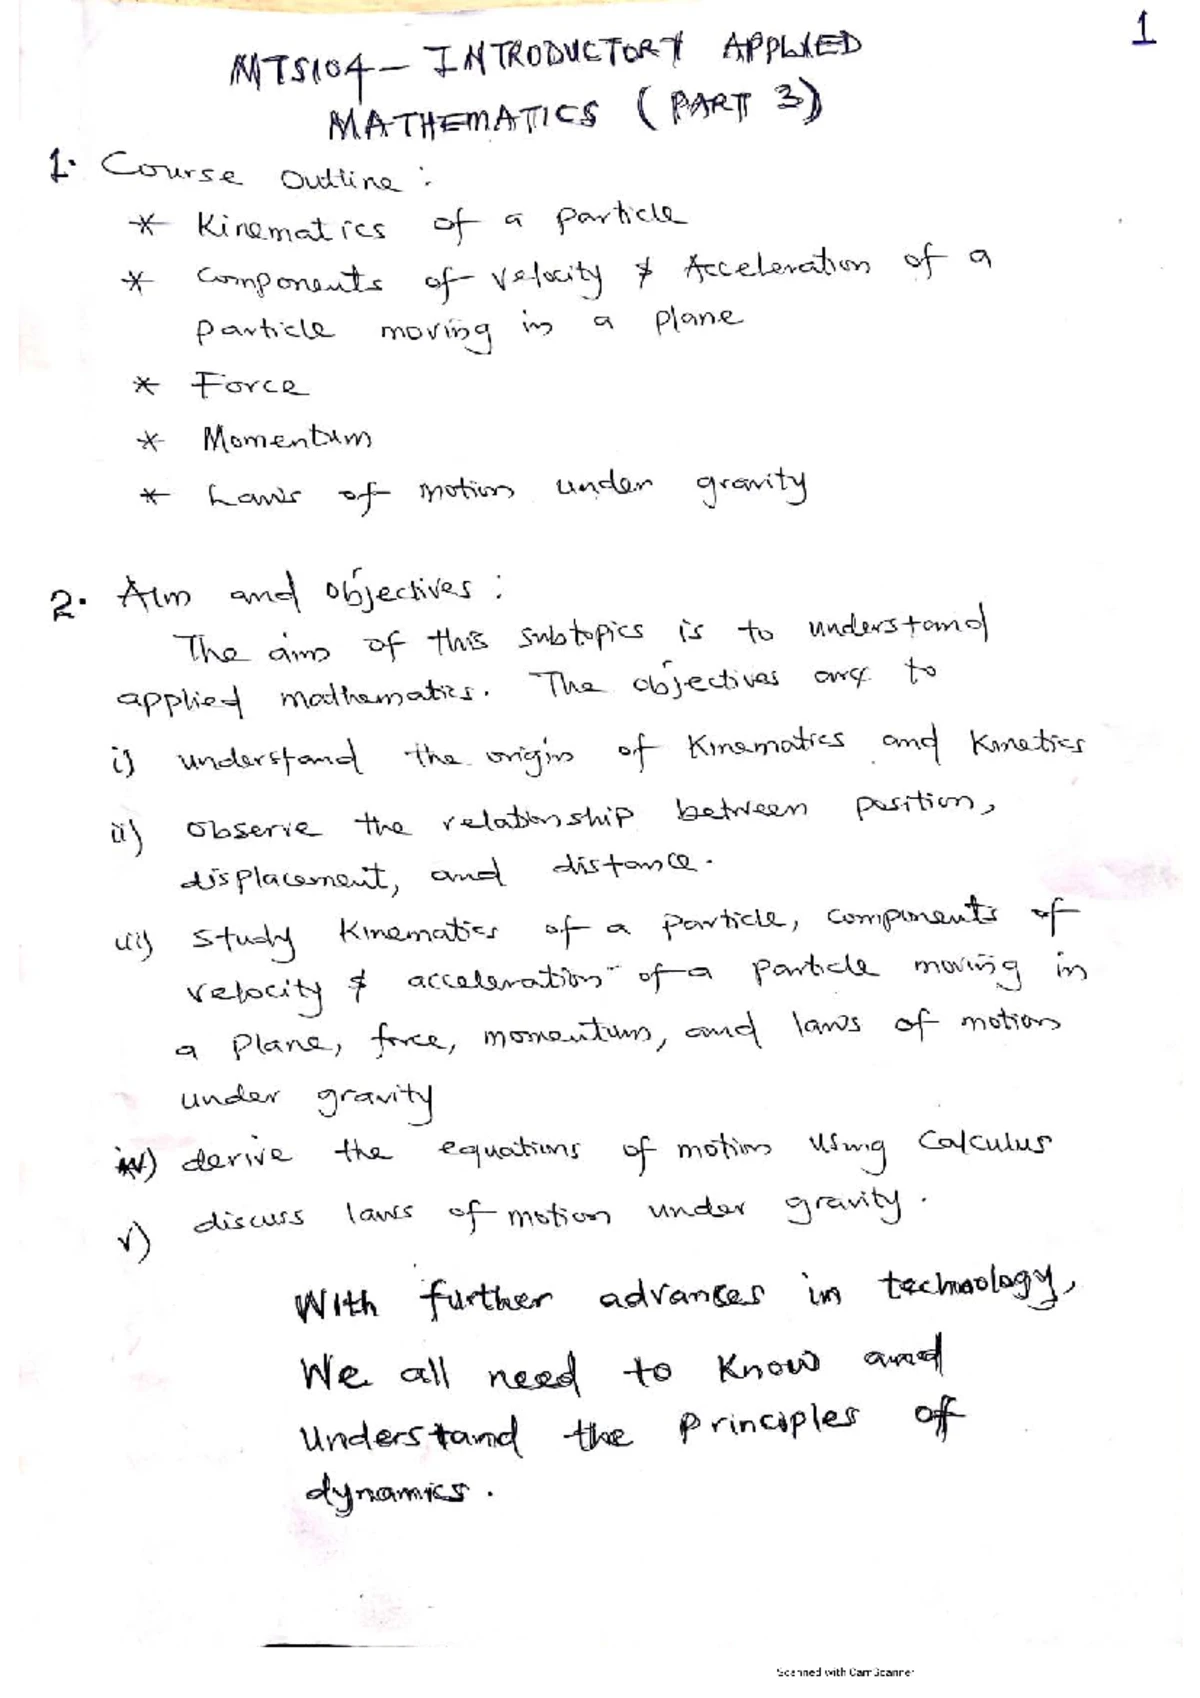 1
MTS104 - INTRODUCTORY APPLIED
MATHEMATICS (PART 3)
1. Course Outline :
* Kinematics of a particle
* Components of velocity & Acceleration of a
particle moving in a plane
* Force
* Momentum
* Laws of motion under gravity
2. Aim and objectives :
The aim of this subtopics is to understand
applied mathematics. The objectives are to
i) understand the origin of Kinematics and Kinetics
ii) observe the relationship between position,
displacement, and distance.
iii) study Kinematics of a particle, components of
velocity & acceleration of a particle moving in
a plane, force, momentum, and laws of motion
under gravity
iv) derive the equations of motion using Calculus
v) discuss laws of motion under gravity.
With further advances in technology,
We all need to Know and
Understand the principles of
dynamics.
Scanned with CamScanner